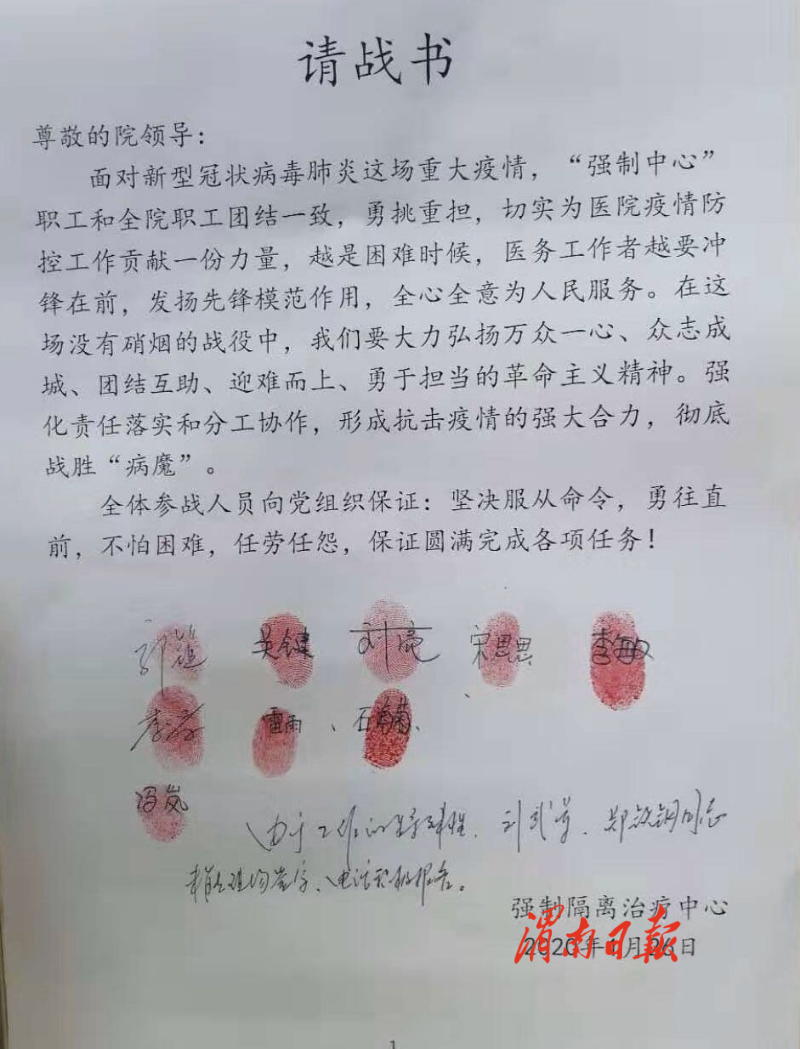 请战书
尊敬的院领导：
面对新型冠状病毒肺炎这场重大疫情，“强制中心”
职工和全院职工团结一致，勇挑重担，切实为医院疫情防
控工作贡献一份力量，越是困难时候，医务工作者越要冲
锋在前，发扬先锋模范作用，全心全意为人民服务。在这
场没有硝烟的战役中，我们要大力弘扬万众一心、众志成
城、团结互助、迎难而上、勇于担当的革命主义精神。强
化责任落实和分工协作，形成抗击疫情的强大合力，彻底
战胜“病魔”。
全体参战人员向党组织保证：坚决服从命令，勇往直
前，不怕困难，任劳任怨，保证圆满完成各项任务！
吴键 刘亮 宋思思 李敏
雷雨、石
冯岚
由于工作的特殊性、 同志
电话积极报名。
强制隔离治疗中心
渭南日报
2020年1月26日
1